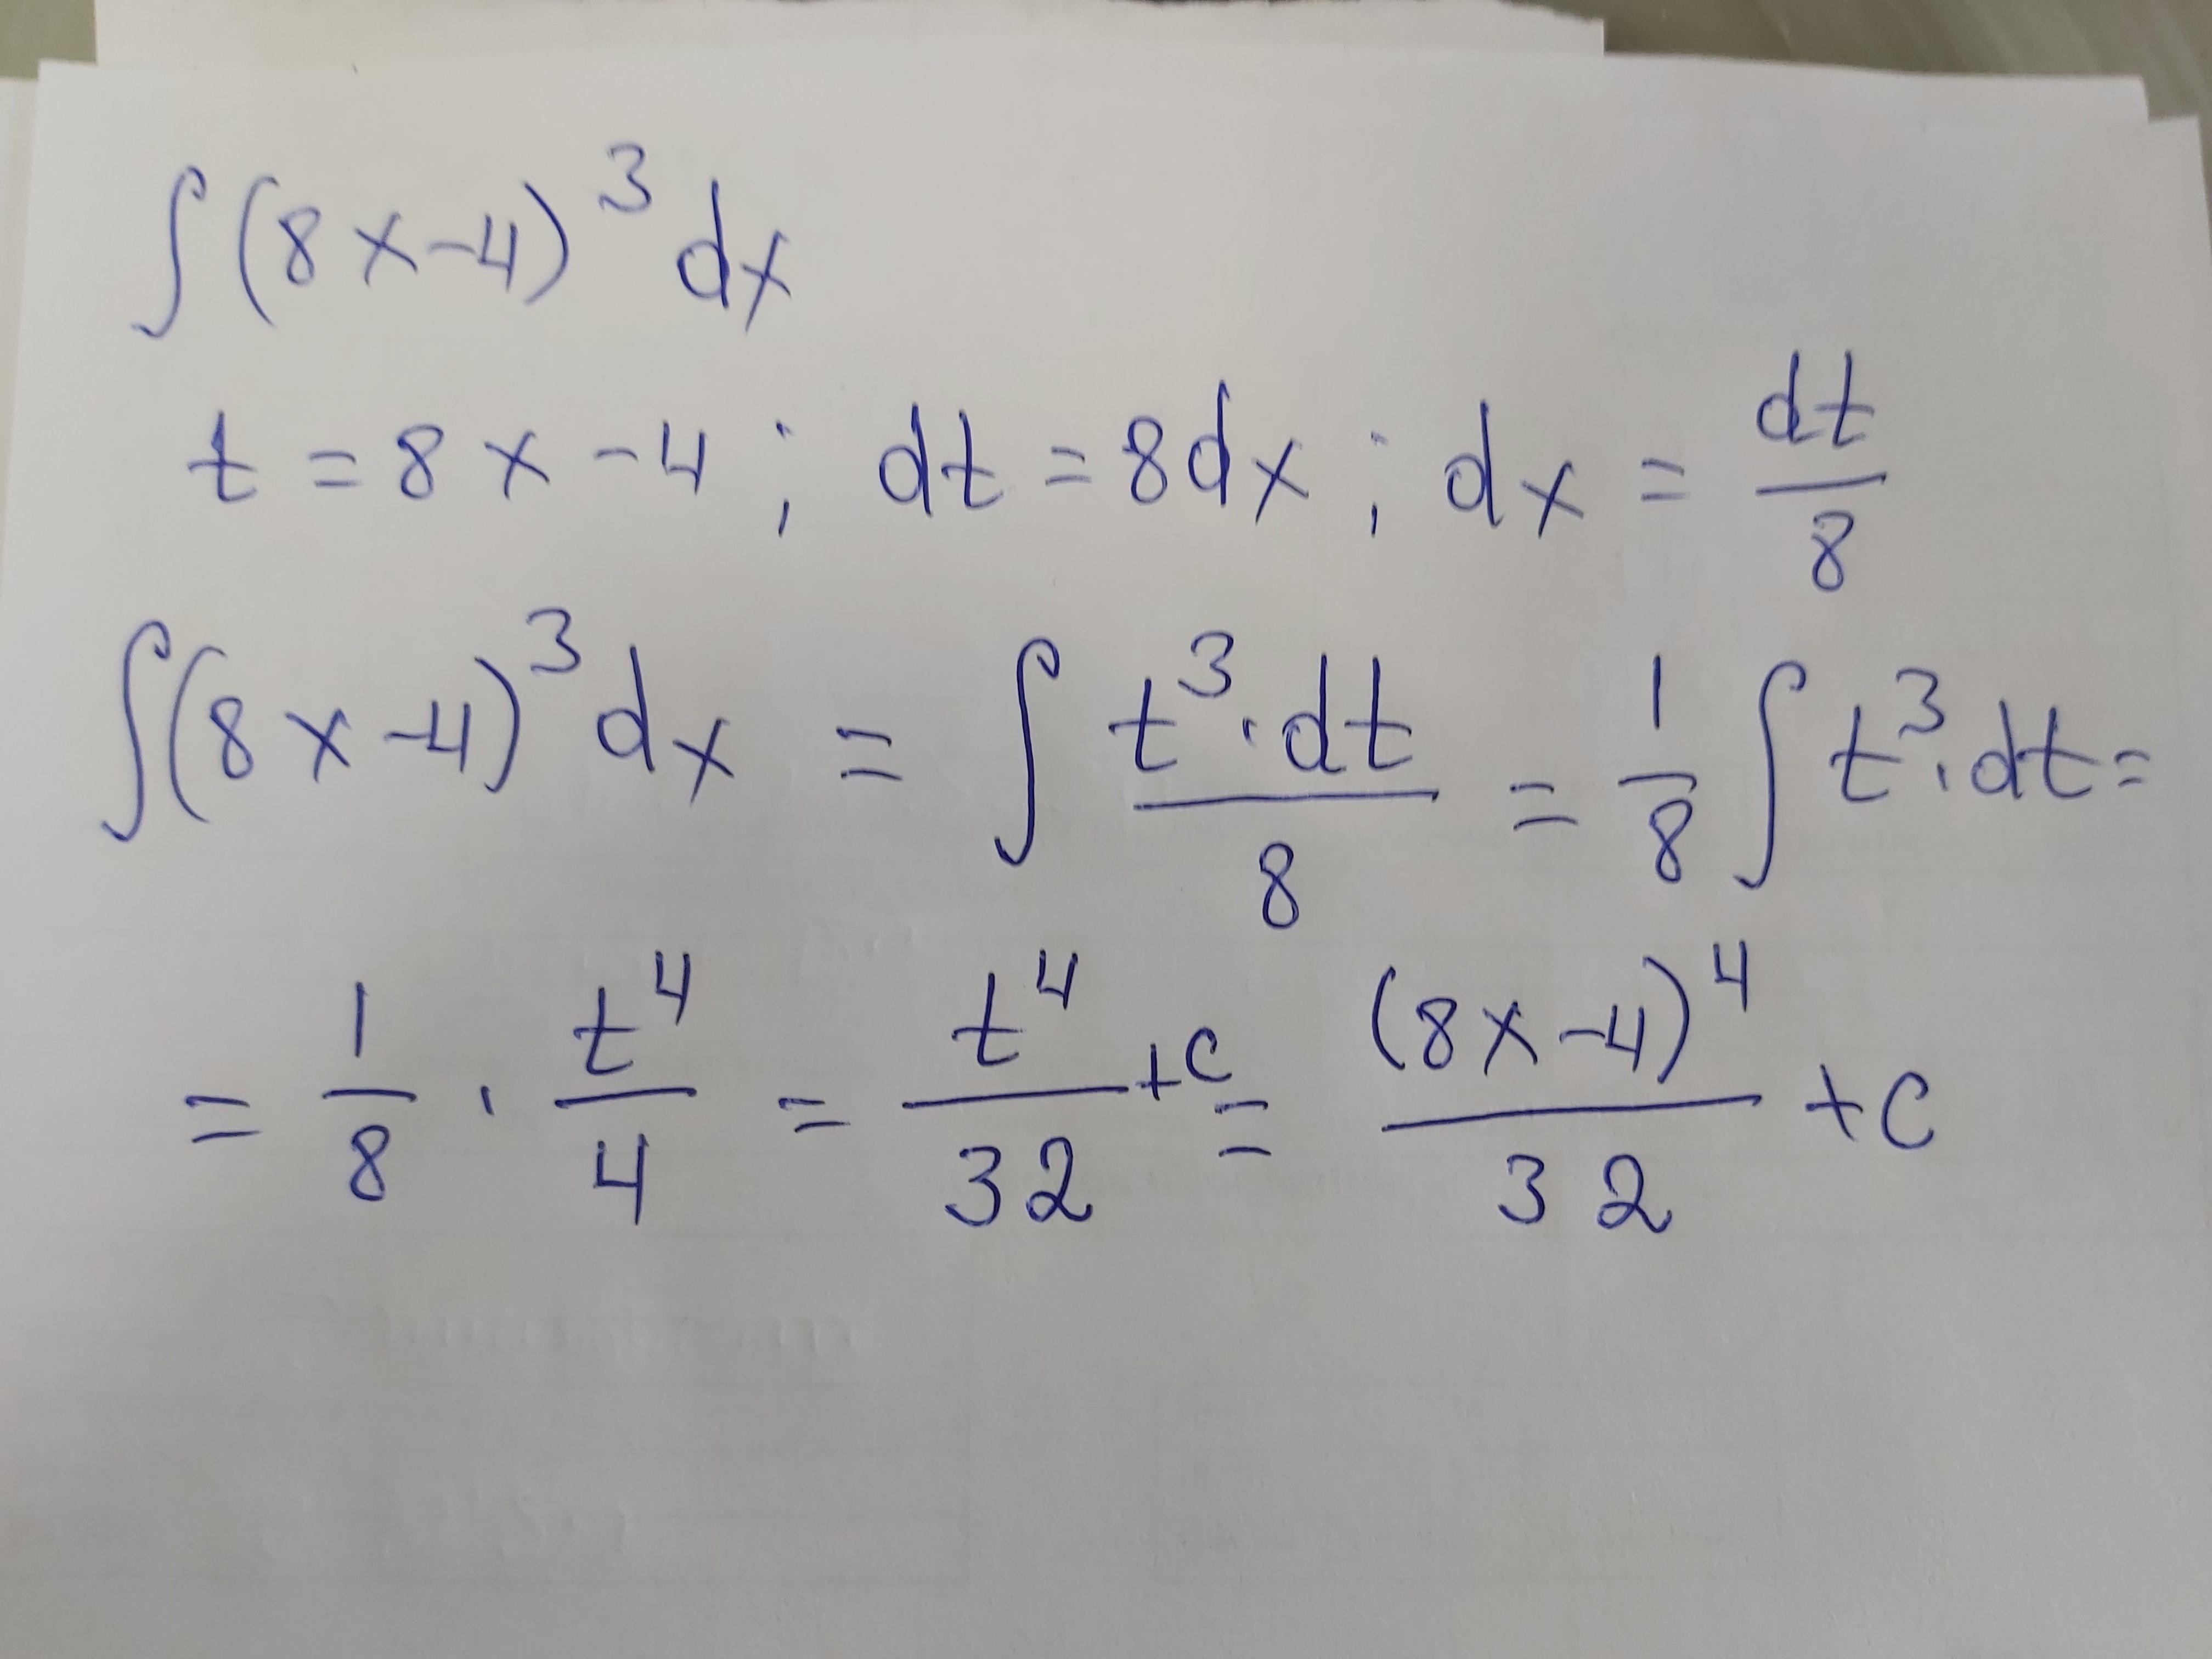 ∫(8x-4)³dx
t = 8x-4; dt = 8dx; dx = dt/8
∫(8x-4)³dx = ∫ t³·dt/8 = 1/8 ∫ t³·dt =
= 1/8 · t⁴/4 = t⁴/32 +c = (8x-4)⁴/32 +c